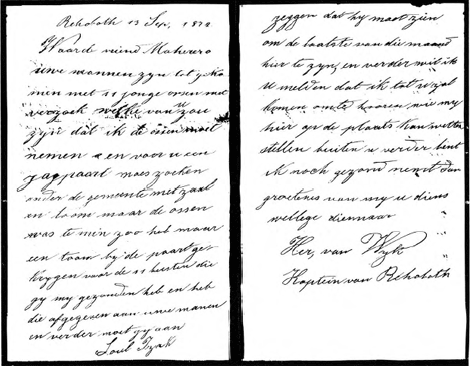 Rehoboth 13 Sep, 1872.
Waarde vriend Maherero
uwe mannen zyn tot my
men met 11 jonge ossen met
verzoek welke van u zou
zyn dat ik de ossen moet
nemen en voor u een
jagpaart moes zoeken
onder de gemeente met zaal
en toom maar de ossen
was te min zoo heb maar
een toom by de paart ge
krygen voor de 11 beesten die
gy my gezonden heb en heb
die afgegeven aan uwe manen
en verder moet gy aan
zeggen dat hy moet zien
om de laatste van die maand
hier te zyn, en verder wil ik
u melden dat ik tot u zal
komen om te hooren wie my
hier op de plaats kan wetten
stellen buiten u verder bent
ik noch gezond menit dan
groetenis van my u diens
wellege dienaar
Her, van Wyk
Kaptein van Rehoboth